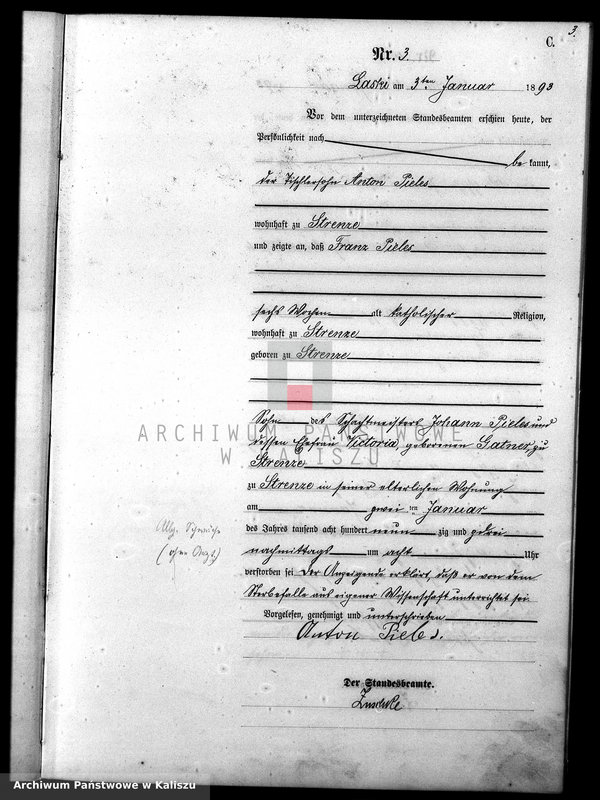 3.
C.
Nr. 3.
Laski am 3ten Januar 1893
Vor dem unterzeichneten Standesbeamten erschien heute, der
Persönlichkeit nach
be kannt,
der Tischlersohn Anton Pieles
wohnhaft zu Strenze
und zeigte an, daß Franz Pieles
sechs Wochen alt katholischer Religion,
wohnhaft zu Strenze
geboren zu Strenze
Sohn des Schaftmeisters Johann Pieles und
dessen Ehefrau Victoria, geborenen Gatner, zu
Strenze
ARCHIWUM PAŃSTWOWE
W KALISZU
zu Strenze in seiner elterlichen Wohnung
am zwei ten Januar
des Jahres tausend acht hundert neun zig und drei
nachmittags um acht Uhr
verstorben sei. Der Anzeigende erklärt, daß er von dem
Sterbefalle aus eigener Wissenschaft unterrichtet sei.
Vorgelesen, genehmigt und unterschrieben
Anton Pieles.
Allg. Schwäche
(ohne Arzt.)
Der Standesbeamte.
Archiwum Państwowe w Kaliszu